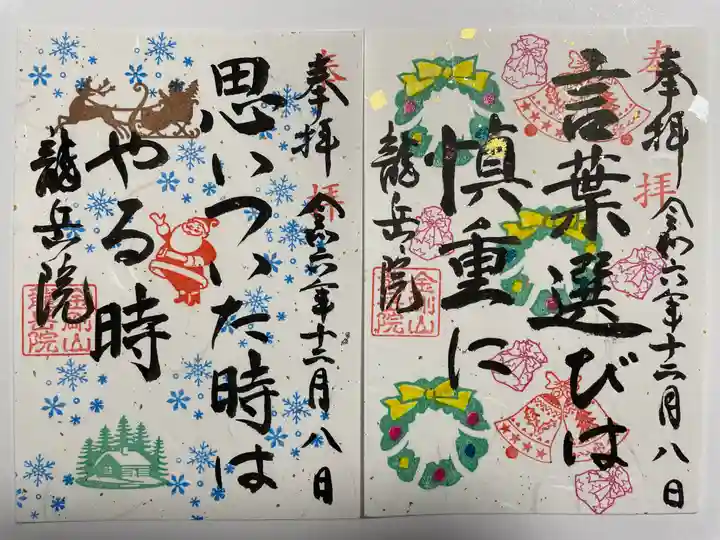 奉拝
令和六年十二月八日
思いついた時は
やる時
龍岳院
金剛山
龍岳院
奉拝
奉拝
令和六年十二月八日
言葉選びは
慎重に
龍岳院
金剛山
龍岳院
奉拝